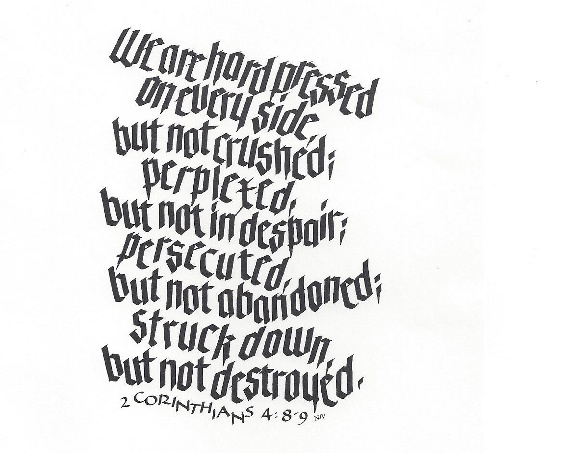 We are hard pressed
on every side,
but not crushed;
perplexed,
but not in despair;
persecuted,
but not abandoned;
struck down,
but not destroyed.
2 CORINTHIANS 4:8-9 NIV